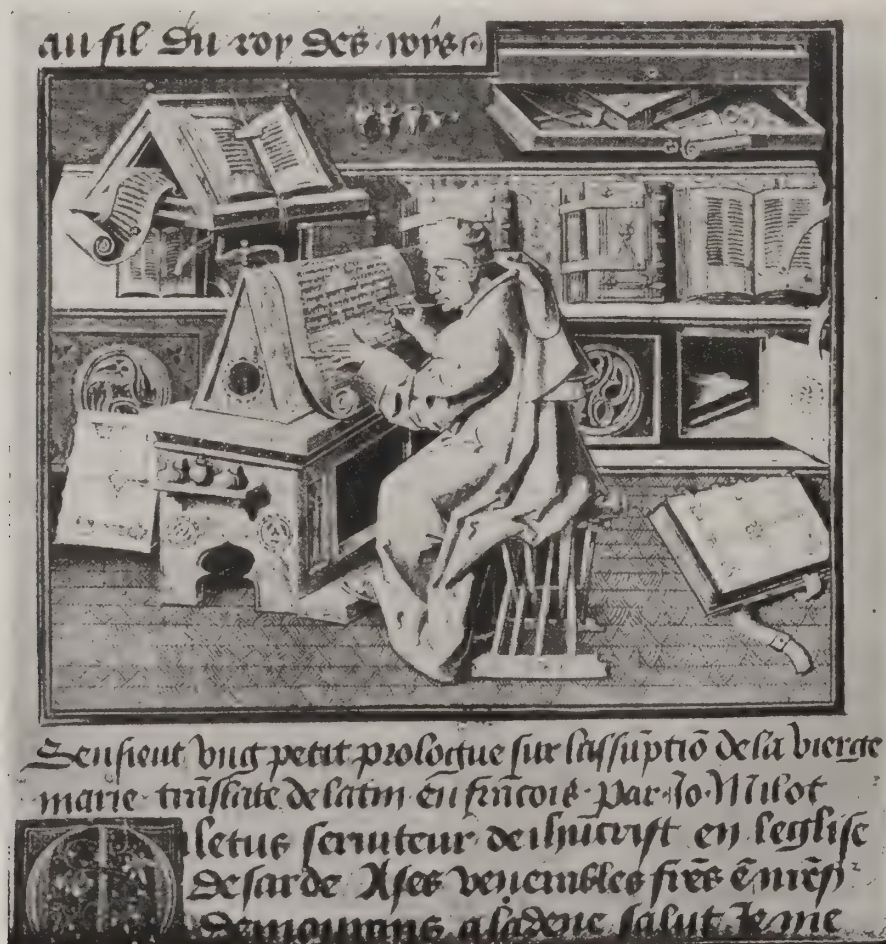 au fil du roy des roys
Sensieut vng petit prologue sur lassũptiõ de la vierge
marie trãslate de latin en frãcois par Jo Milot
Miletus seruiteur de ihũcrist en leglise
de sarde A ses venerables frẽs ẽ nrẽ
demourans a ladene salut Je me